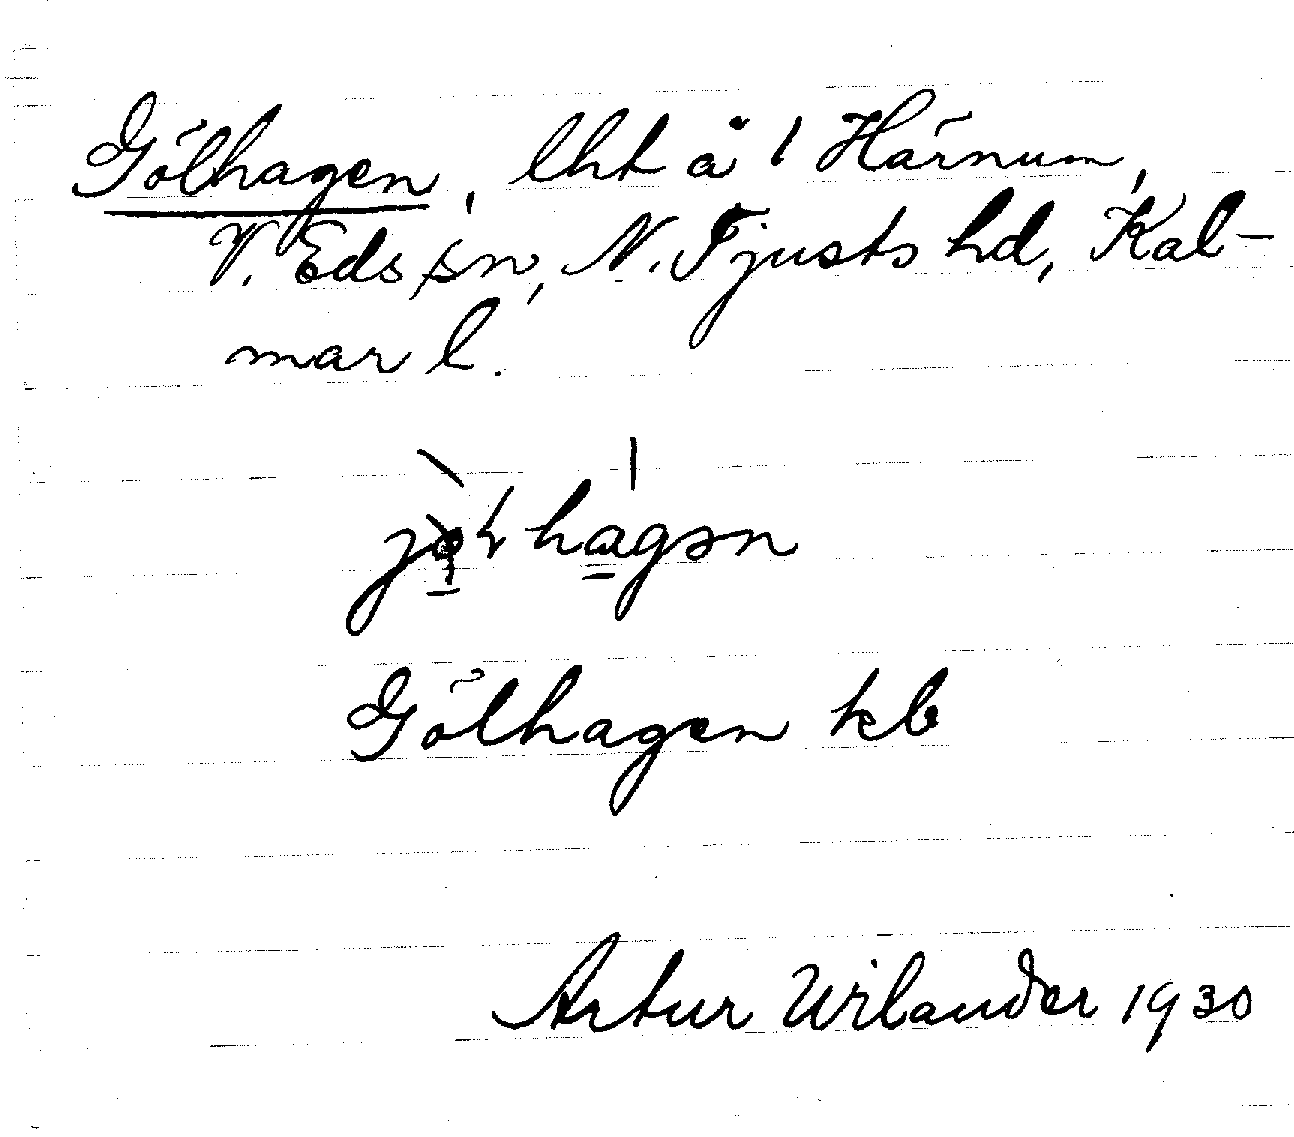 Gölhagen, lht å 1 Härnum,
V. Eds sn, N. Tjusts hd, Kal-
mar l.
Gölhagen kb
Artur Wilander 1930